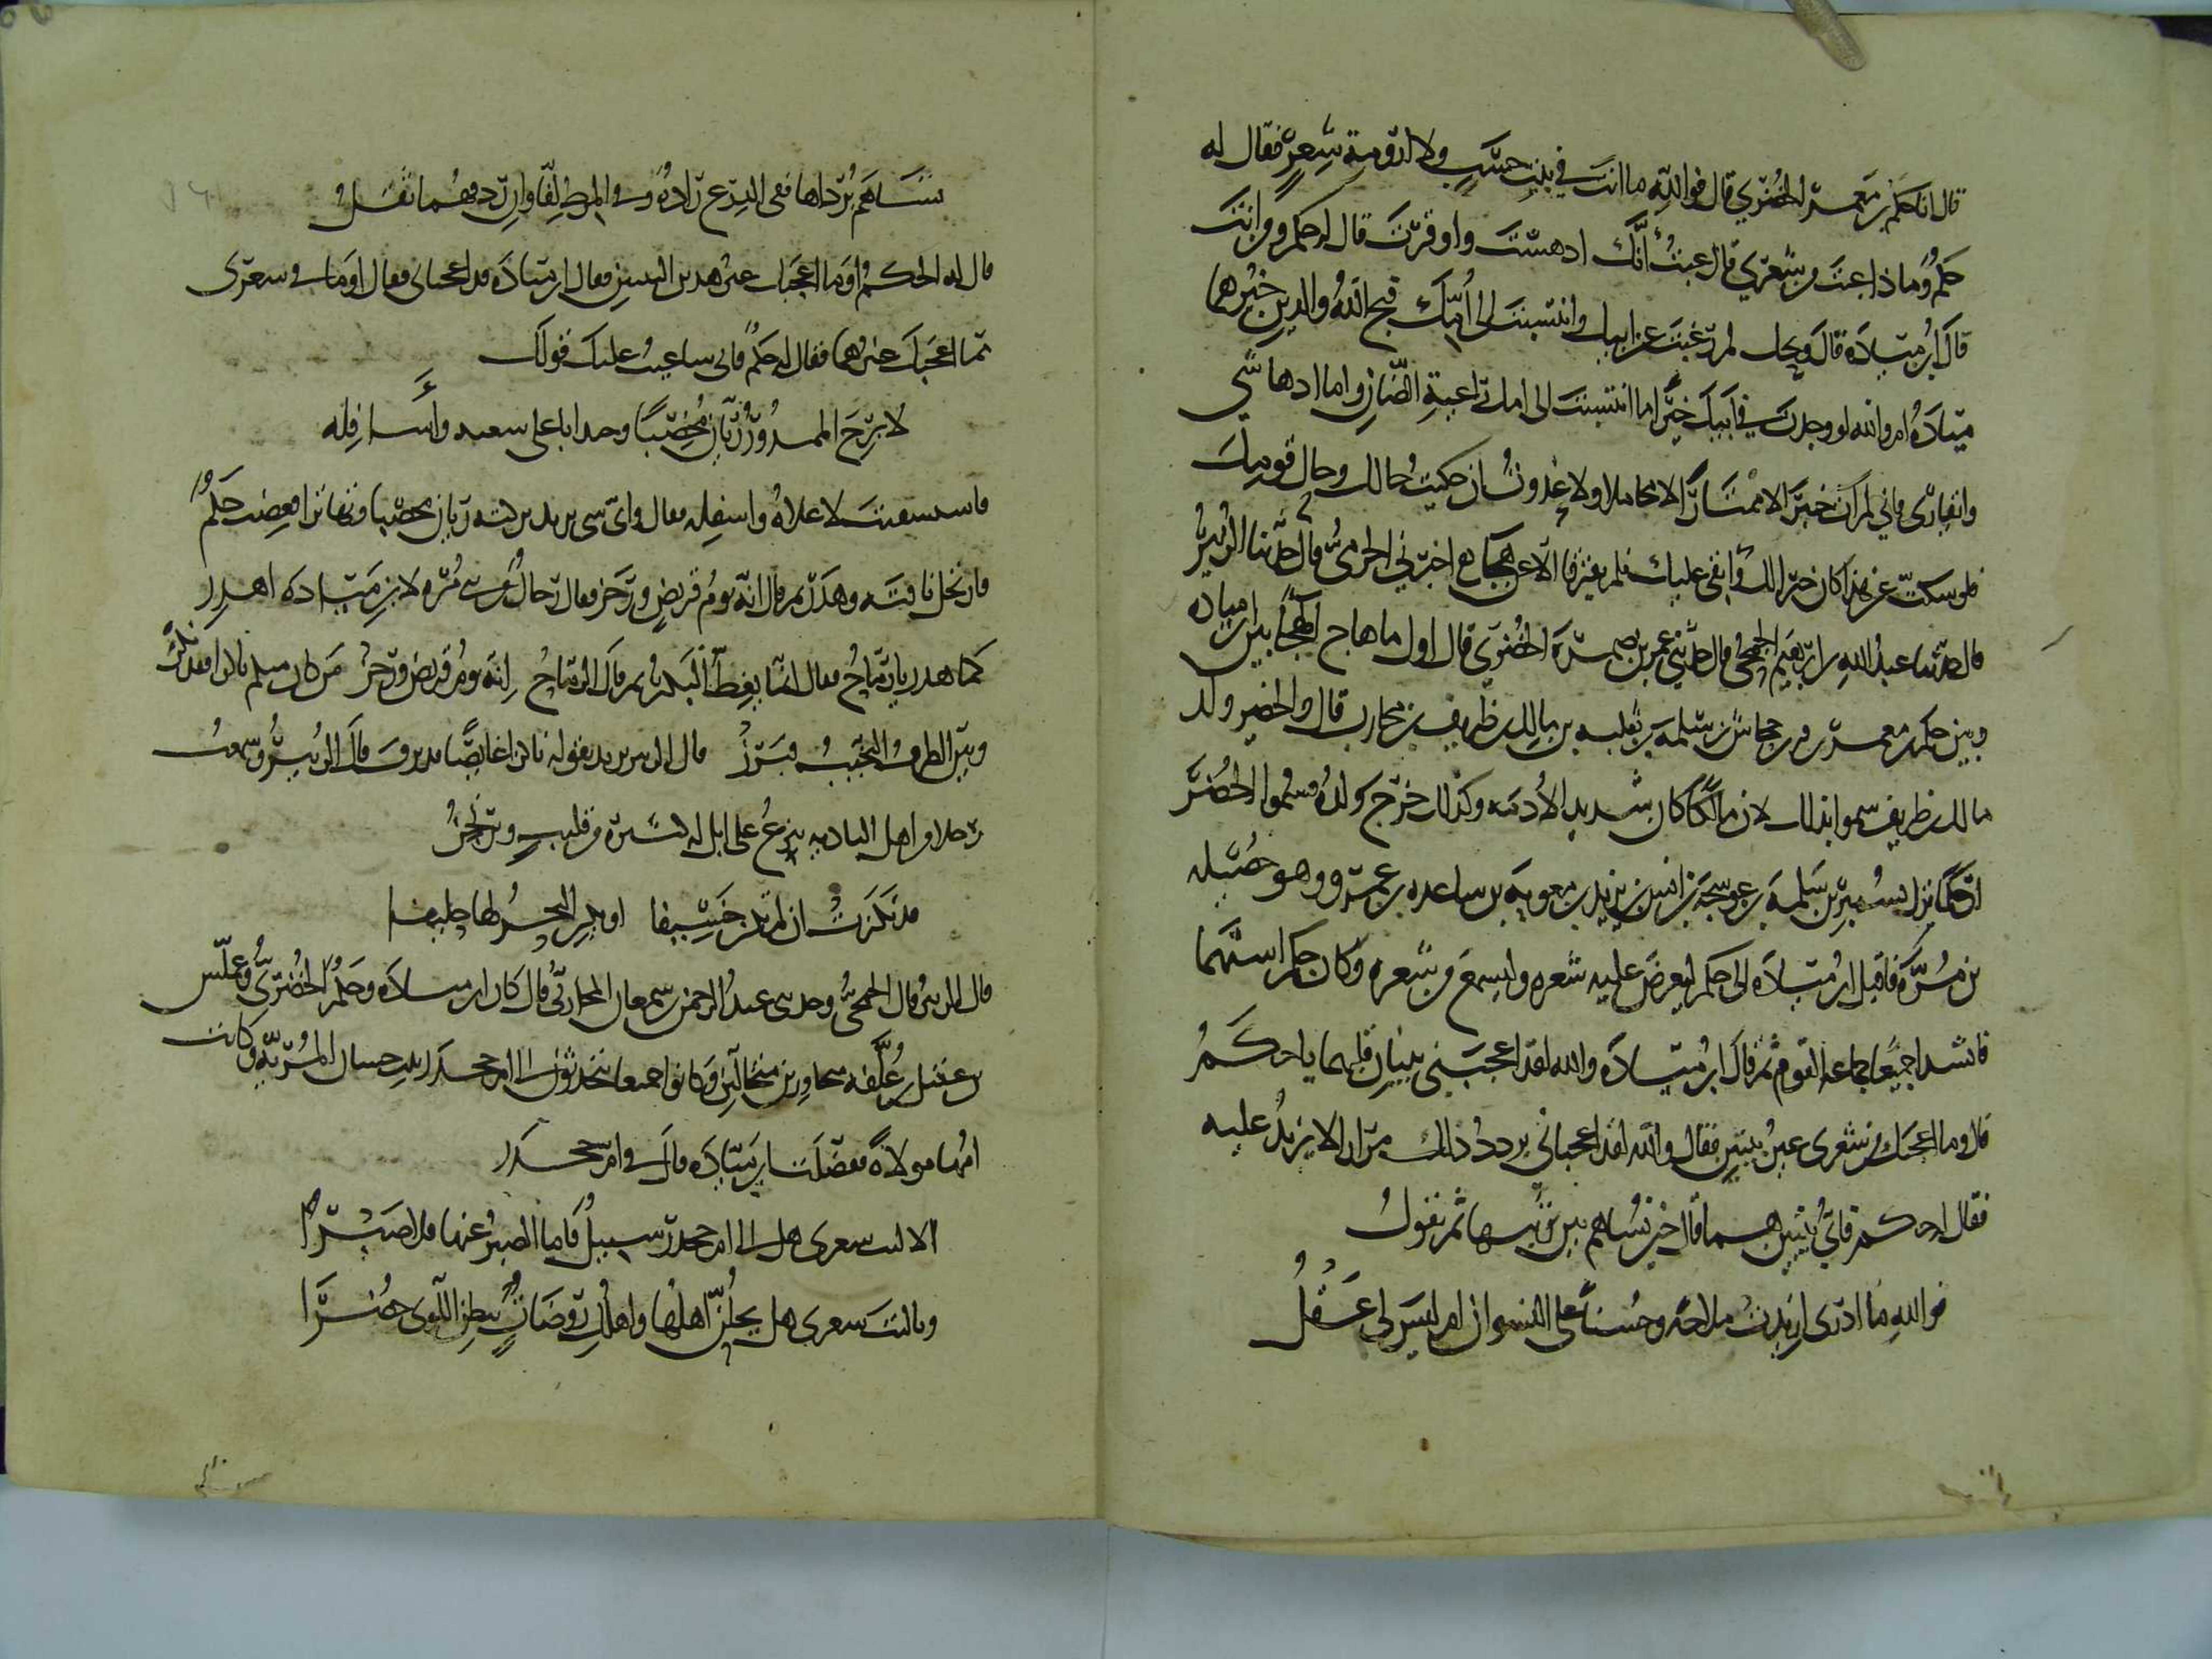 قال انا حكم بن معمر الخضري قال فوالله ما انت في بيت حسب ولا ارومة شعر فقال له
حكم وماذا عبت من شعري قال عبت انك ادهست واوقرت قال له حكم ومن انت
قال ابن ميادة قال ويحك لم رغبت عن ابيك وانتسبت الى امك قبح الله والدين خيرهما
ميادة اما والله لو وجدت في ابيك خيرا ما انتسبت الى امك راعية الضان واما ادهاسي
وايقاري فاني لم آت خيبر الا ممتارا لا متحاملا ولا عدوت ان حكيت حالك وحال قومك
فلو سكت عن هذا كان خيرا لك وابقى عليك فلم يفترقا الا عن هجاء اخبرني الحرمي قال حدثنا الزبير
قال حدثنا عبد الله بن ابرهيم الجمحي قال حدثني عمير بن ضمرة الخضري قال اول ما هاج الهجا بين ابن ميادة
وبين حكم بن معمر بن جحاش بن سلمة بن ثعلبه بن مالك بن طريف بن محارب قال والخضر ولد
مالك بن طريف سموا بذلك لان مالكا كان شديد الادمه وكذلك خرج ولده فسموا الخضر
ان حكما نزل بسمير بن سلمة بن عوسجة بن انس بن يزيد بن معوية بن ساعده بن عمرو وهو خصيله
بن مرة فاقبل ابن ميادة الى حكم ليعرض عليه شعره وليسمع من شعره وكان حكم اسنهما
فانشدا جميعا جماعة القوم ثم قال ابن ميادة والله لقد اعجبني بيتان قلتهما يا حكم
قال وما اعجبك من شعري غير بيتين فقال والله لقد اعجباني يردد ذلك مرارا لا يزيد عليه
فقال له حكم فاي بيتين هما قال حين تساهم بين ثوبيها ثم تقول
فوالله ما ادري ازيدت ملاحة وحسنا على النسوان ام ليس لي عقل
تساهم برداها ففي الدرع رادة وفي المرط لفاوان ردفهما نقل
قال له الحكم او ما اعجباك غير هذين البيتين فقال ابن ميادة قد اعجباني فقال او ما في شعري
ما اعجبك غيرهما فقال له حكم فاني ساعيب عليك قولك
لا برح الممدور ريان مخصبا وجدا باعلى سعيه واسافله
فاستسقيت لاعلاه واسفله فقال واي شي يريد تركته ريان مخصبا وتهاترا فغضب حكم
فارتحل ناقته وهدر ثم قال انه يوم قريض ورجز فقال رجال من بني مره لابن ميادة اهدر
كما هدر يا رماح فقال انما يغط البكر ثم قال الرماح انه يوم قريض ورجز من كان منكم ناكزا فقد نكز
وبين الطرف النجيب فبرز قال الزبير يريد بقوله ناكزا غايضا قد نزف قال الزبير وسمعت
رجلا من اهل الباديه ينزع على ابل له كثيرة من قليب ويرتجز
قد نكزت ان لم تكن خسيفا او يكن البحر لها حليفا
قال الزبير قال الجمحي وحدثني عبد الرحمن بن سمعان المحاربي قال كان ابن ميادة وحكم الخضري وعملس
بن عقيل بن علفه متجاورين متحالين وكانوا جميعا يتحدثون الى ام جحدر ابنة حسان المرية وكانت
امها مولاة ففضلت ابن ميادة قال في ام جحدر
الا ليت شعري هل الى ام جحدر سبيل فاما الصبر عنها فلا صبرا
ويا ليت شعري هل يحلن اهلها واهلك روضات ببطن اللوى خضرا